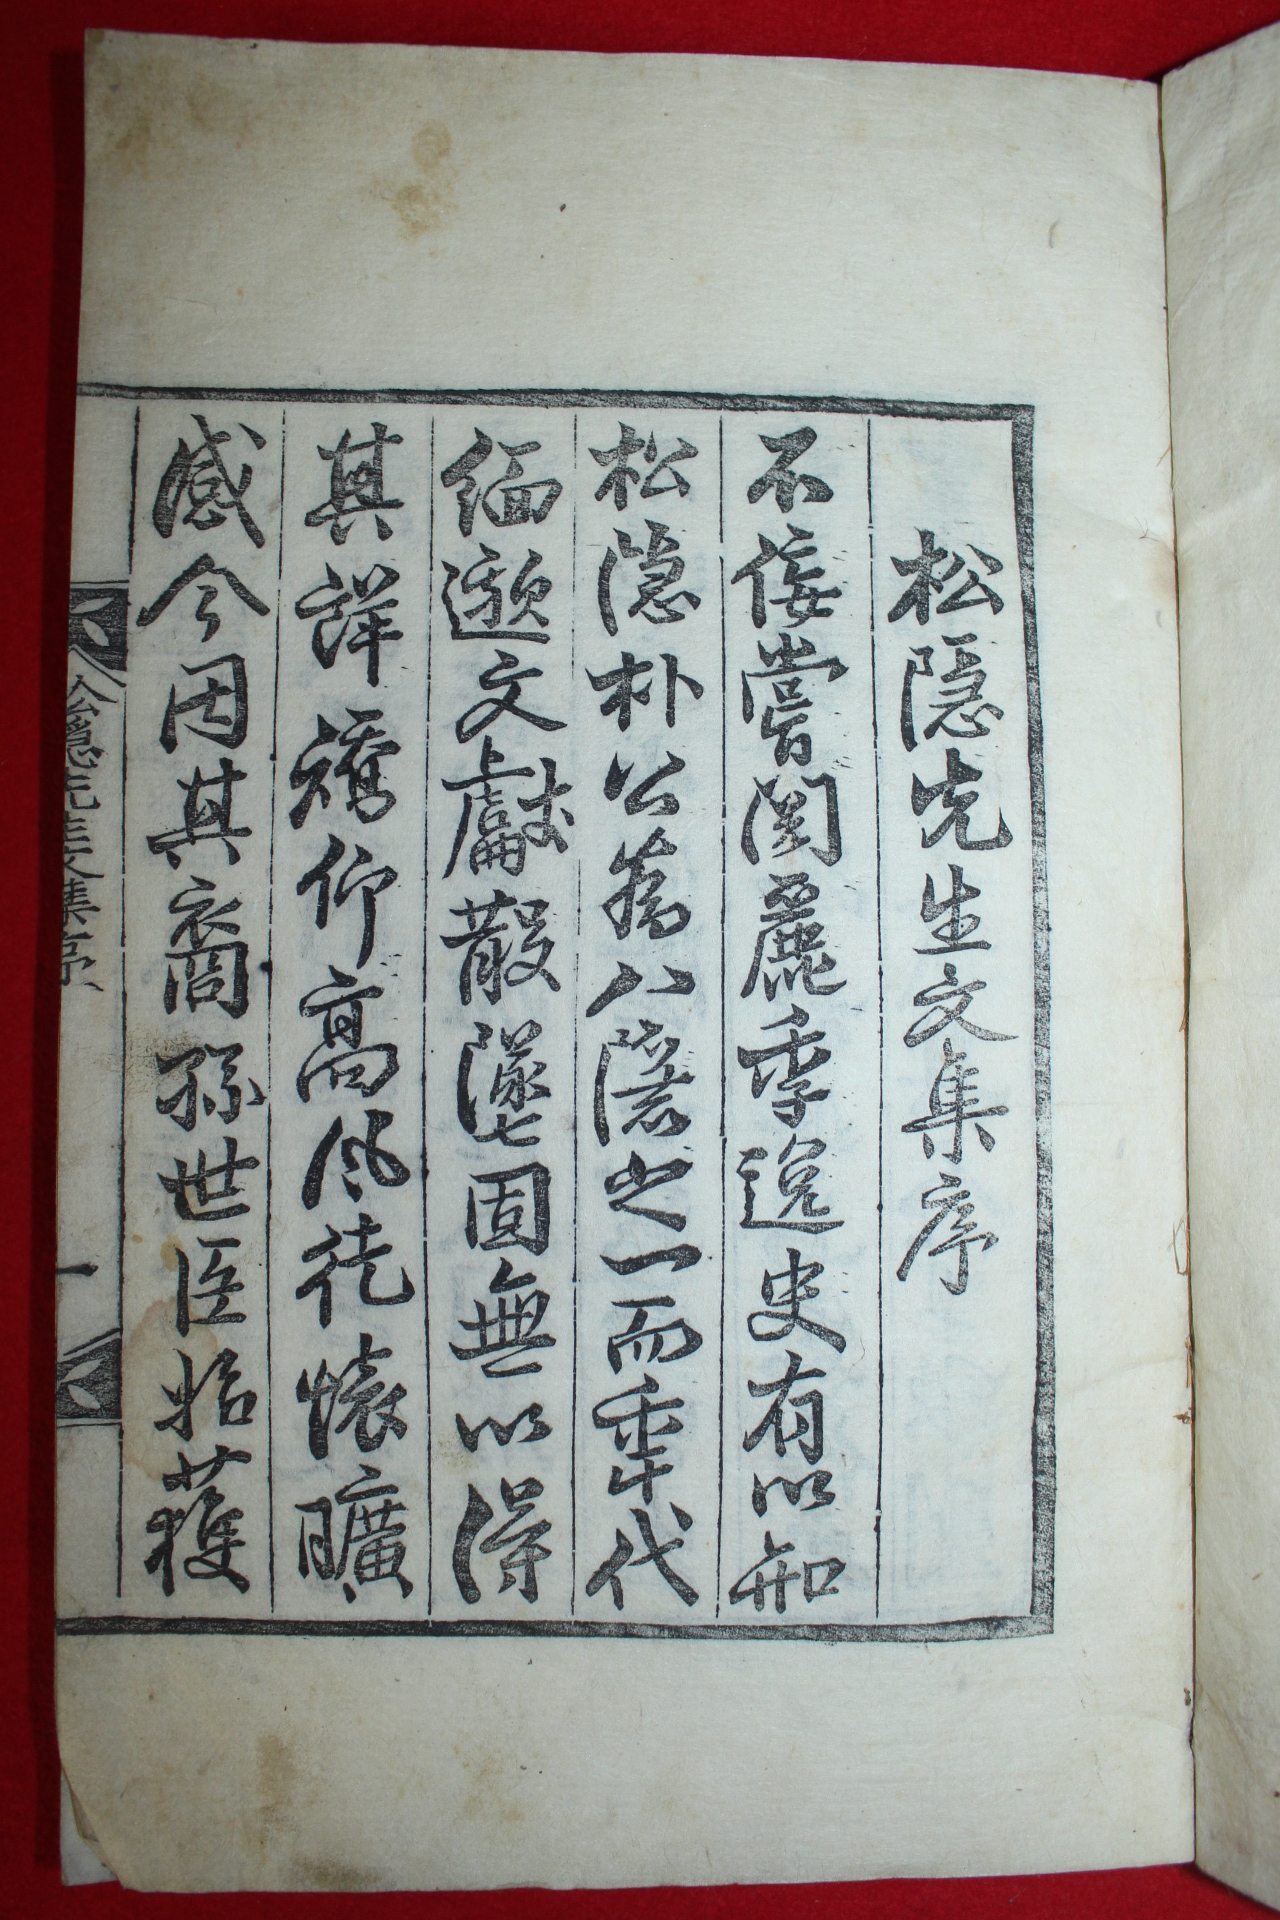 松隱先生文集序
不佞嘗閱麗季逸史有以知
松隱朴公爲八隱之一而秊代
緬邈文獻散墜固無以得
其詳矯仰高風徒懷曠
感今因其裔孫世臣始獲
松隱先生文集序
一